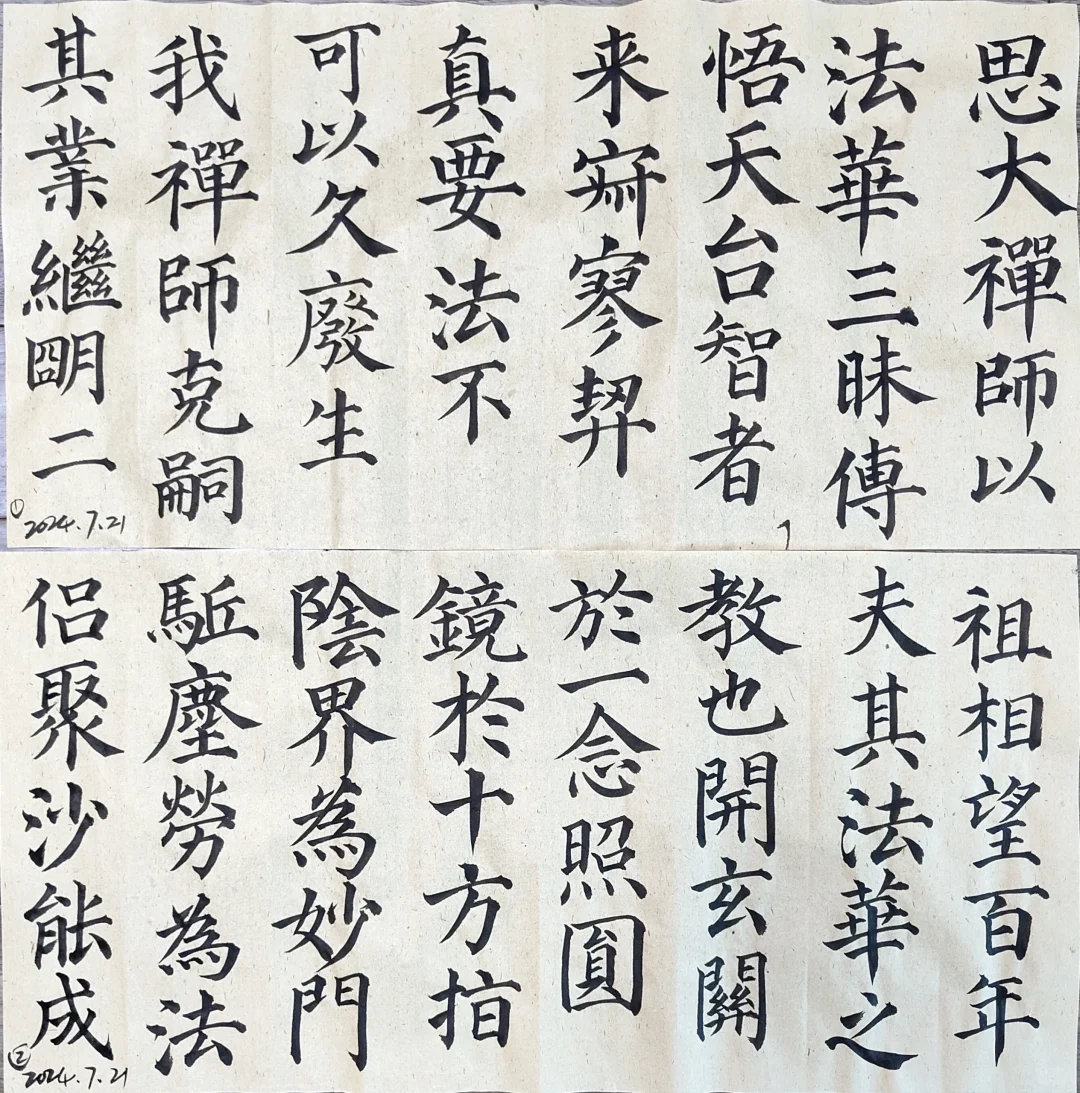 思大禪師以
法華三昧傳
悟天台智者
来寂寥契
真要法不
可以久廢生
我禪師克嗣
其業繼明二
① 2024.7.21
祖相望百年
夫其法華之
教也開玄關
於一念照圓
鏡於十方指
陰界為妙門
駈塵勞為法
侣聚沙能成
② 2024.7.21